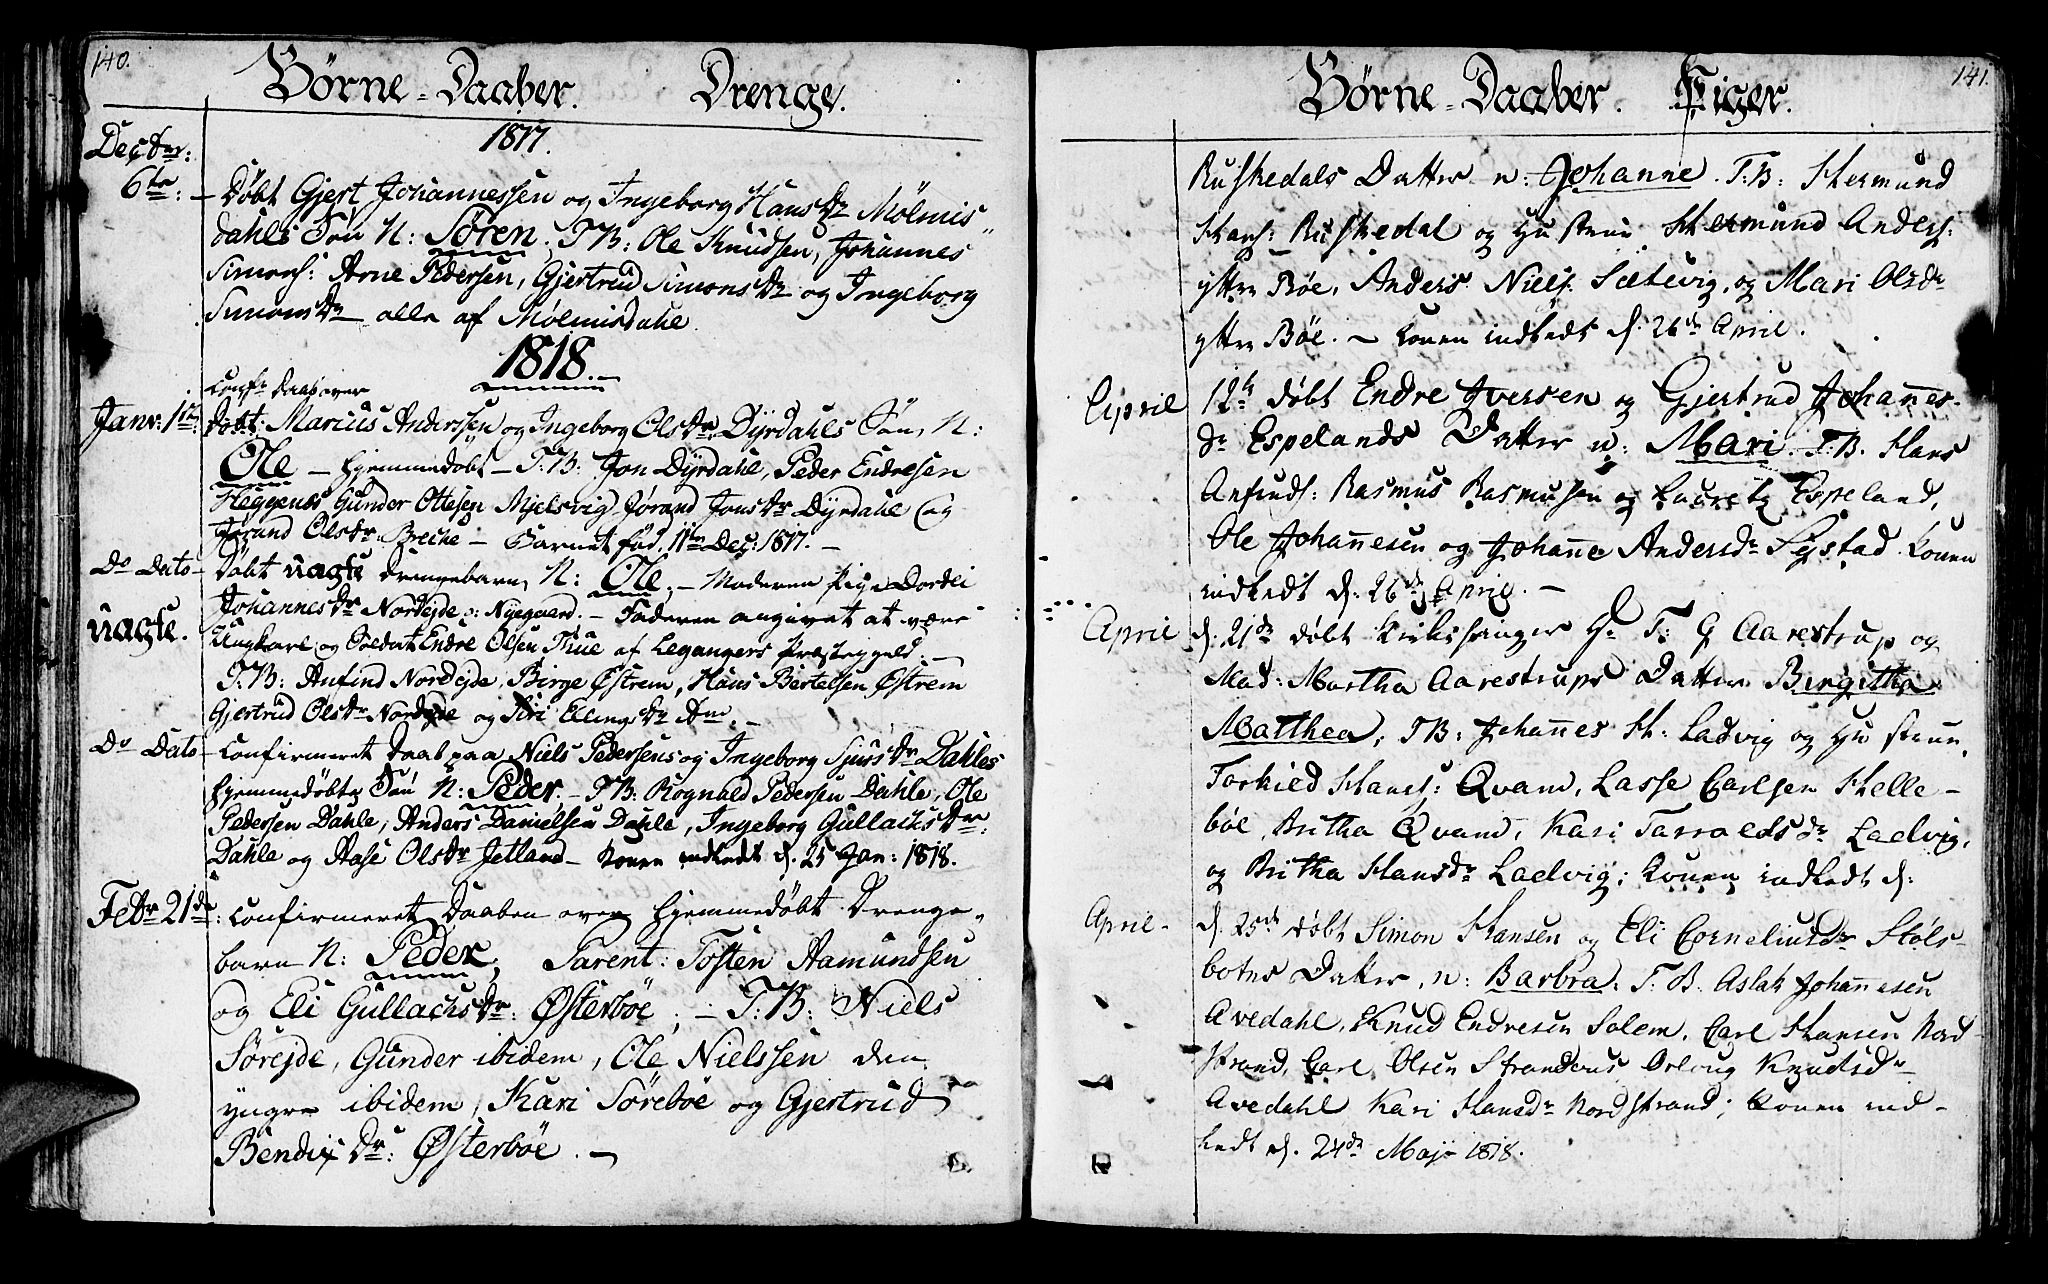 140.
Börne-Daaber. Drenge.
1817.
Decbr:
6te: – Döbt Gjert Johannessen og Ingeborg Hans Dr Mölmis
dahls Sön N: Sören. T.B: Ole Knudsen, Johannes
Simons: Arne Pedersen, Gjertrud Simons Dr og Ingeborg
Simons Dr alle af Mölmisdahl.
1818. –
Conf. Daab over
Janv: 1te: Döbt: Marius Andersen og Ingeborg Ols Dr Dÿrdahls Sön, N:
Ole – Hjemmedöbt – T:B: Jon Dÿrdahl, Peder Endresen
Heggenæs Gunder Ottesen Mjelsvig Jörand Jons Dr Dÿrdahl og
Jorand Ols Dr Breche – Barnet föd 11te Dec: 1817. –
Do Dato – Döbt uægte Drengebarn, N: Ole – Moderen Pige Dordei
uægte. Johannes Dr Nordejde o: Nÿegaard. – Faderen angivet at være
Ungkarl og Soldat Endre Olsen Thue af Legangers Præstegield. –
T.B: Anfind Nordejde, Birge Østrem, Hans Bertelsen Østrem
Gjertrud Ols Dr Nordejde og Siri Elling Dr –
Do Dato – Confirmeret Daab paa Niels Pedersens og Ingeborg Sjurs Dr Dahles
hjemmedöbte Sön N: Peder. – T.B: Rognald Pedersen Dahle, Ole
Pedersen Dahle, Anders Danielsen Dahle, Ingeborg Gullachs Dr:
Dahle og Aase Ols Dr Jetland – Konen indledt d. 25 Jan: 1818.
Febr 21de: Confirmeret Daaben over hjemmedöbt Drenge-
barn N: Peder, Parent: Tosten Aamundsen
og Eli Gullachs Dr: Østerböe. – T:B: Niels
Sörejde, Gunder ibidem, Ole Nielssen den
yngre ibidem, Kari Söreböe og Gjertrud
Bendix Dr: Østerböe. –
141.
Börne-Daaber. Piger.
Ruskedals Datter n: Johanne. T:B: Hermund
Hans: Ruskedal og Hustrue Hermund Anders:
yttre Böe, Anders Niels: Sætevig, og Mari Olsdr
yttre Böe. – Konen indledt d. 26de April.
April 12te döbt Endre Iversen og Gjertrud Johannes-
dr Espelands Datter n: Mari. T.B. Hans
Anfinds: Rasmus Rasmusen og Lauretz Espeland,
Ole Johannesen og Johanne Andersdr Systad. Konen
indledt d. 26de April. –
April d. 21de döbt Kirkesanger Hr T: G Aarestrup og
Mad: Martha Aarestrups Datter Birgitha
Matthea, T.B: Johannes H: Ladvig og Hustrue,
Torkied Hans: Qvam, Lasse Carlsen Helle-
böe, Britha Qvam, Kari Tarraldsdr Ladvig,
og Britha Hansdr Ladvig; Konen indledt d:
April – d. 25de döbt Simon Hansen og Eli Corneliusdr Stöls-
botns Datter, n: Barbra. T.B. Aslak Johannesen
Avedahl, Knud Endresen Solem, Carl Hansen Nord-
strand, Carl Olsen Orloug Knudsdr
Avedahl Kari Hansdr Nordstrand; Konen ind-
ledt d. 24de Maji 1818.